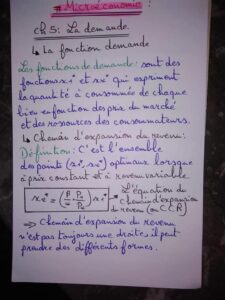 * Microéconomie:
ch 5: La demande.
↳ La fonction demande
Les fonctions de demande: sont des
fonctions x₁* et x₂* qui expriment
la quantité à consommée de chaque
bien en fonction des prix du marché
et des ressources des consommateurs.
↳ Chemin d'expansion du revenu:
Définition: C'est l'ensemble
des points (x₁*, x₂*) optimaux lorsque
à prix constant et à revenu variable
L'équation du
Chemin d'expansion
du revenu (ou C.E.R)
⇒ Chemin d'expansion du revenu
n'est pas toujours une droite, il peut
prendre des différents formes.